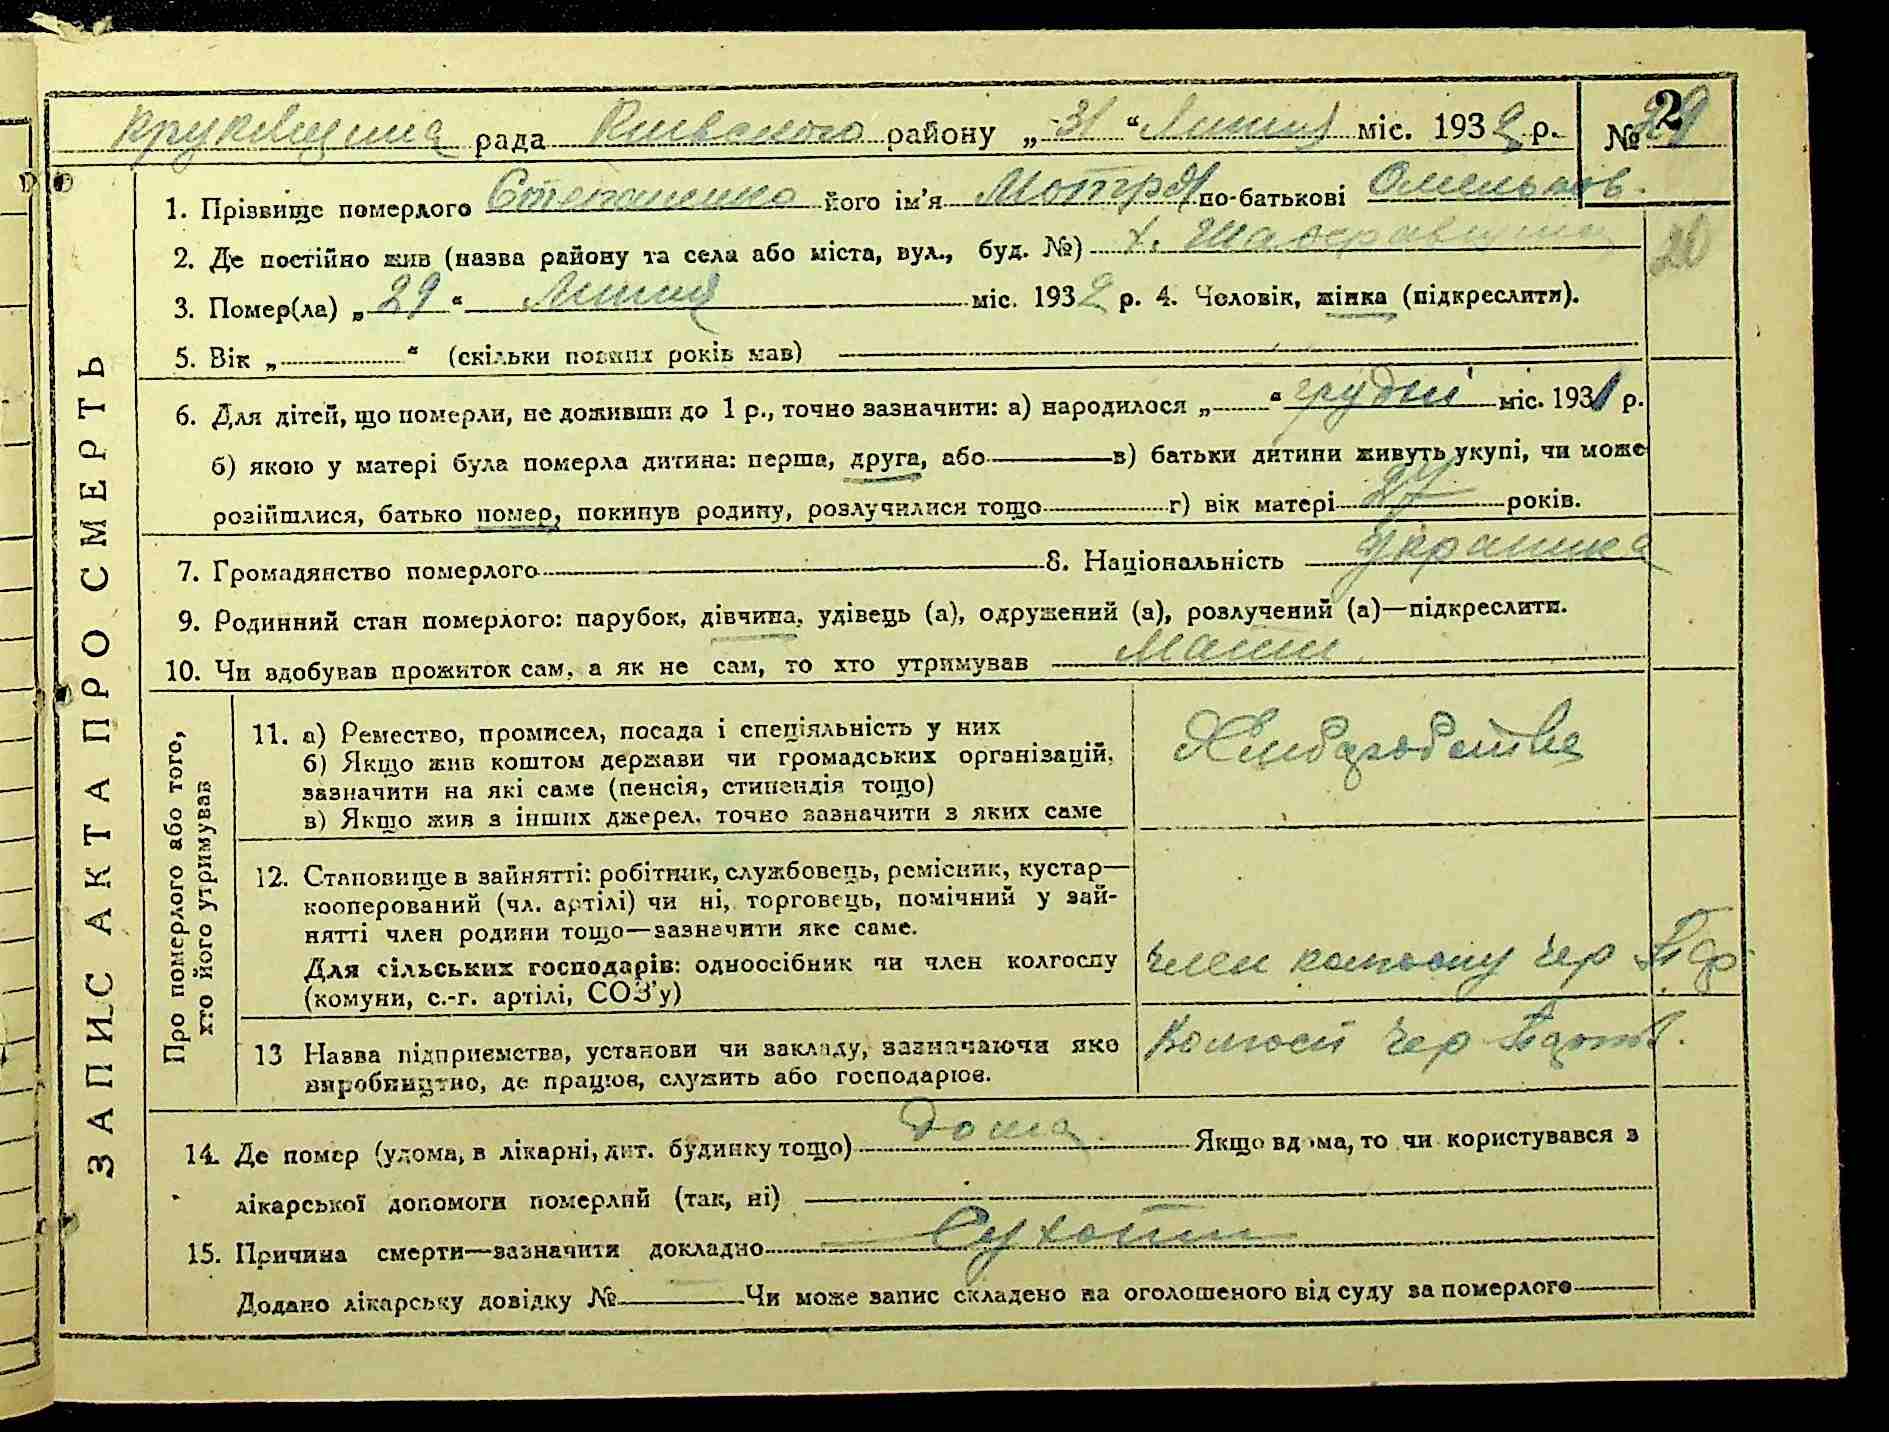 ЗАПИС АКТА ПРО СМЕРТЬ
Круківщина рада Київського району „31“ Липня міс. 1932 р. № 29
2
1. Прізвище померлого Степаненко його ім’я Мотря по-батькові Омельков.
2. Де постійно жив (назва району та села або міста, вул., буд. №) х.
20
3. Помер(ла) „29“ Липня міс. 1932 р. 4. Чоловік, жінка (підкреслити).
5. Вік „ “ (скільки повних років мав)
6. Для дітей, що померли, не доживши до 1 р., точно зазначити: а) народилося „ “ грудні міс. 1931 р.
б) якою у матері була померла дитина: перша, друга, або в) батьки дитини живуть укупі, чи може
розійшлися, батько помер, покинув родину, розлучилися тощо г) вік матері 27 років.
7. Громадянство померлого 8. Національність Українка
9. Родинний стан померлого: парубок, дівчина, удівець (а), одружений (а), розлучений (а)—підкреслити.
10. Чи здобував прожиток сам, а як не сам, то хто утримував Мати
Про померлого або того,
хто його утримував
11. а) Ремество, промисел, посада і спеціяльність у них
б) Якщо жив коштом держави чи громадських організацій,
зазначити на які саме (пенсія, стипендія тощо)
в) Якщо жив з інших джерел, точно зазначити з яких саме
Хліборобство
12. Становище в зайнятті: робітник, службовець, ремісник, кустар—
кооперований (чл. артілі) чи ні, торговець, помічний у зай-
нятті член родини тощо—зазначити яке саме.
Для сільських господарів: одноосібник чи член колгоспу
(комуни, с.-г. артілі, СОЗ’у)
член колгоспу Чер
13 Назва підприємства, установи чи закладу, зазначаючи яке
виробництво, де працює, служить або господарює.
Колгосп Чер
14. Де помер (удома, в лікарні, дит. будинку тощо) дома Якщо вдома, то чи користувався з
лікарської допомоги померлий (так, ні)
15. Причина смерти—зазначити докладно Сухоти
Додано лікарську довідку № Чи може запис складено на оголошеного від суду за померлого